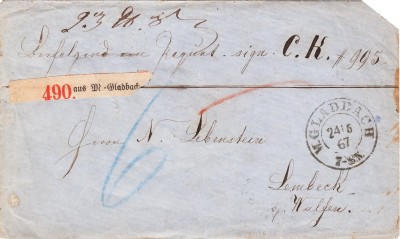 Beifolgend ein Paquet sign. C. R. # 995
490. aus M.-Gladbach
6
M. GLADBACH
24 5
67
7-8 N
Herrn N. Lebenstein
Lembeck
p. Wulfen.